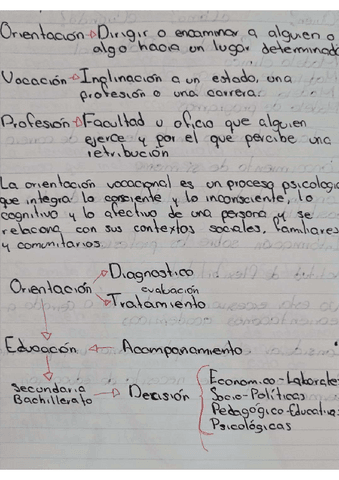 Orientación → Dirigir o encaminar a alguien o
algo hacia un lugar determinado
Vocación → Inplinación a un estado, una
profesión o una carrera.
Profesión → Facultad u oficio que alguien
ejerce y por el que percibe una
retribución
La orientación vocacional es un proceso psicologic
que integra lo consiente y lo inconsciente, lo
cognitivo y lo afectivo de una persona y se
relaciona con sus contextos sociales, familiares
y comunitarios.
Diagnostico
Orientación evaluación
Tratamiento
Educación ← Acompanamiento
Secundaria
Bachillerato → Decisión
Economico-Laborales
Socio-Politicas
Pedagógico-Educativa
Psicológicas